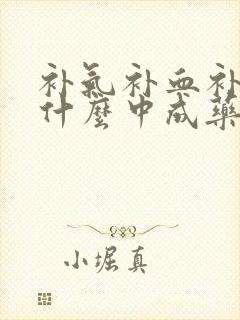 补氣补血补
什麼中成藥
小堀真